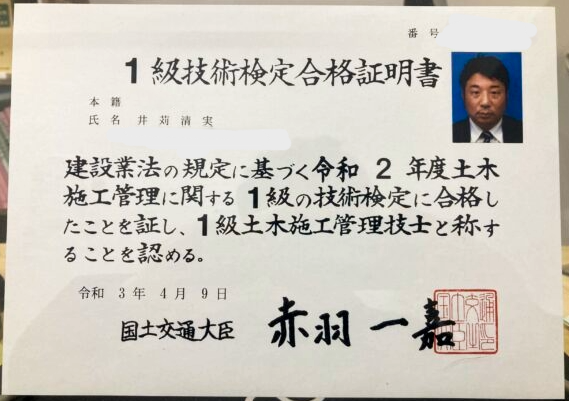 番号
1級技術検定合格証明書
本籍
氏名 井苅清実
建設業法の規定に基づく令和2年度土木
施工管理に関する1級の技術検定に合格し
たことを証し、1級土木施工管理技士と称す
ることを認める。
令和3年4月9日
国土交通大臣 赤羽一嘉